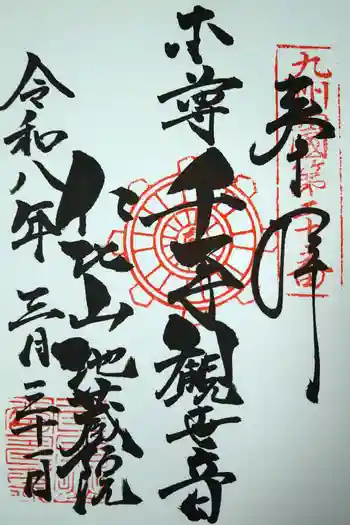 奉拝
九州西国第十二番
本尊
千手観世音
仁比山地蔵院
令和八年
三月二十一日